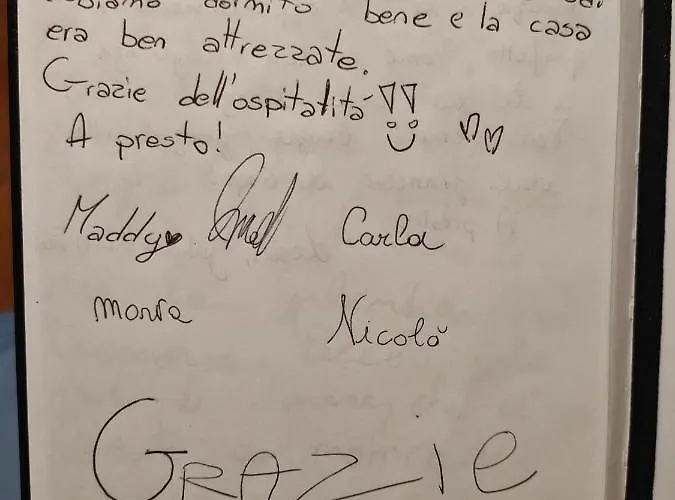 dormito bene e la casa
era ben attrezzate.
Grazie dell'ospitalità!!
A presto!
Maddy Carla
Nicolò
GRAZIE